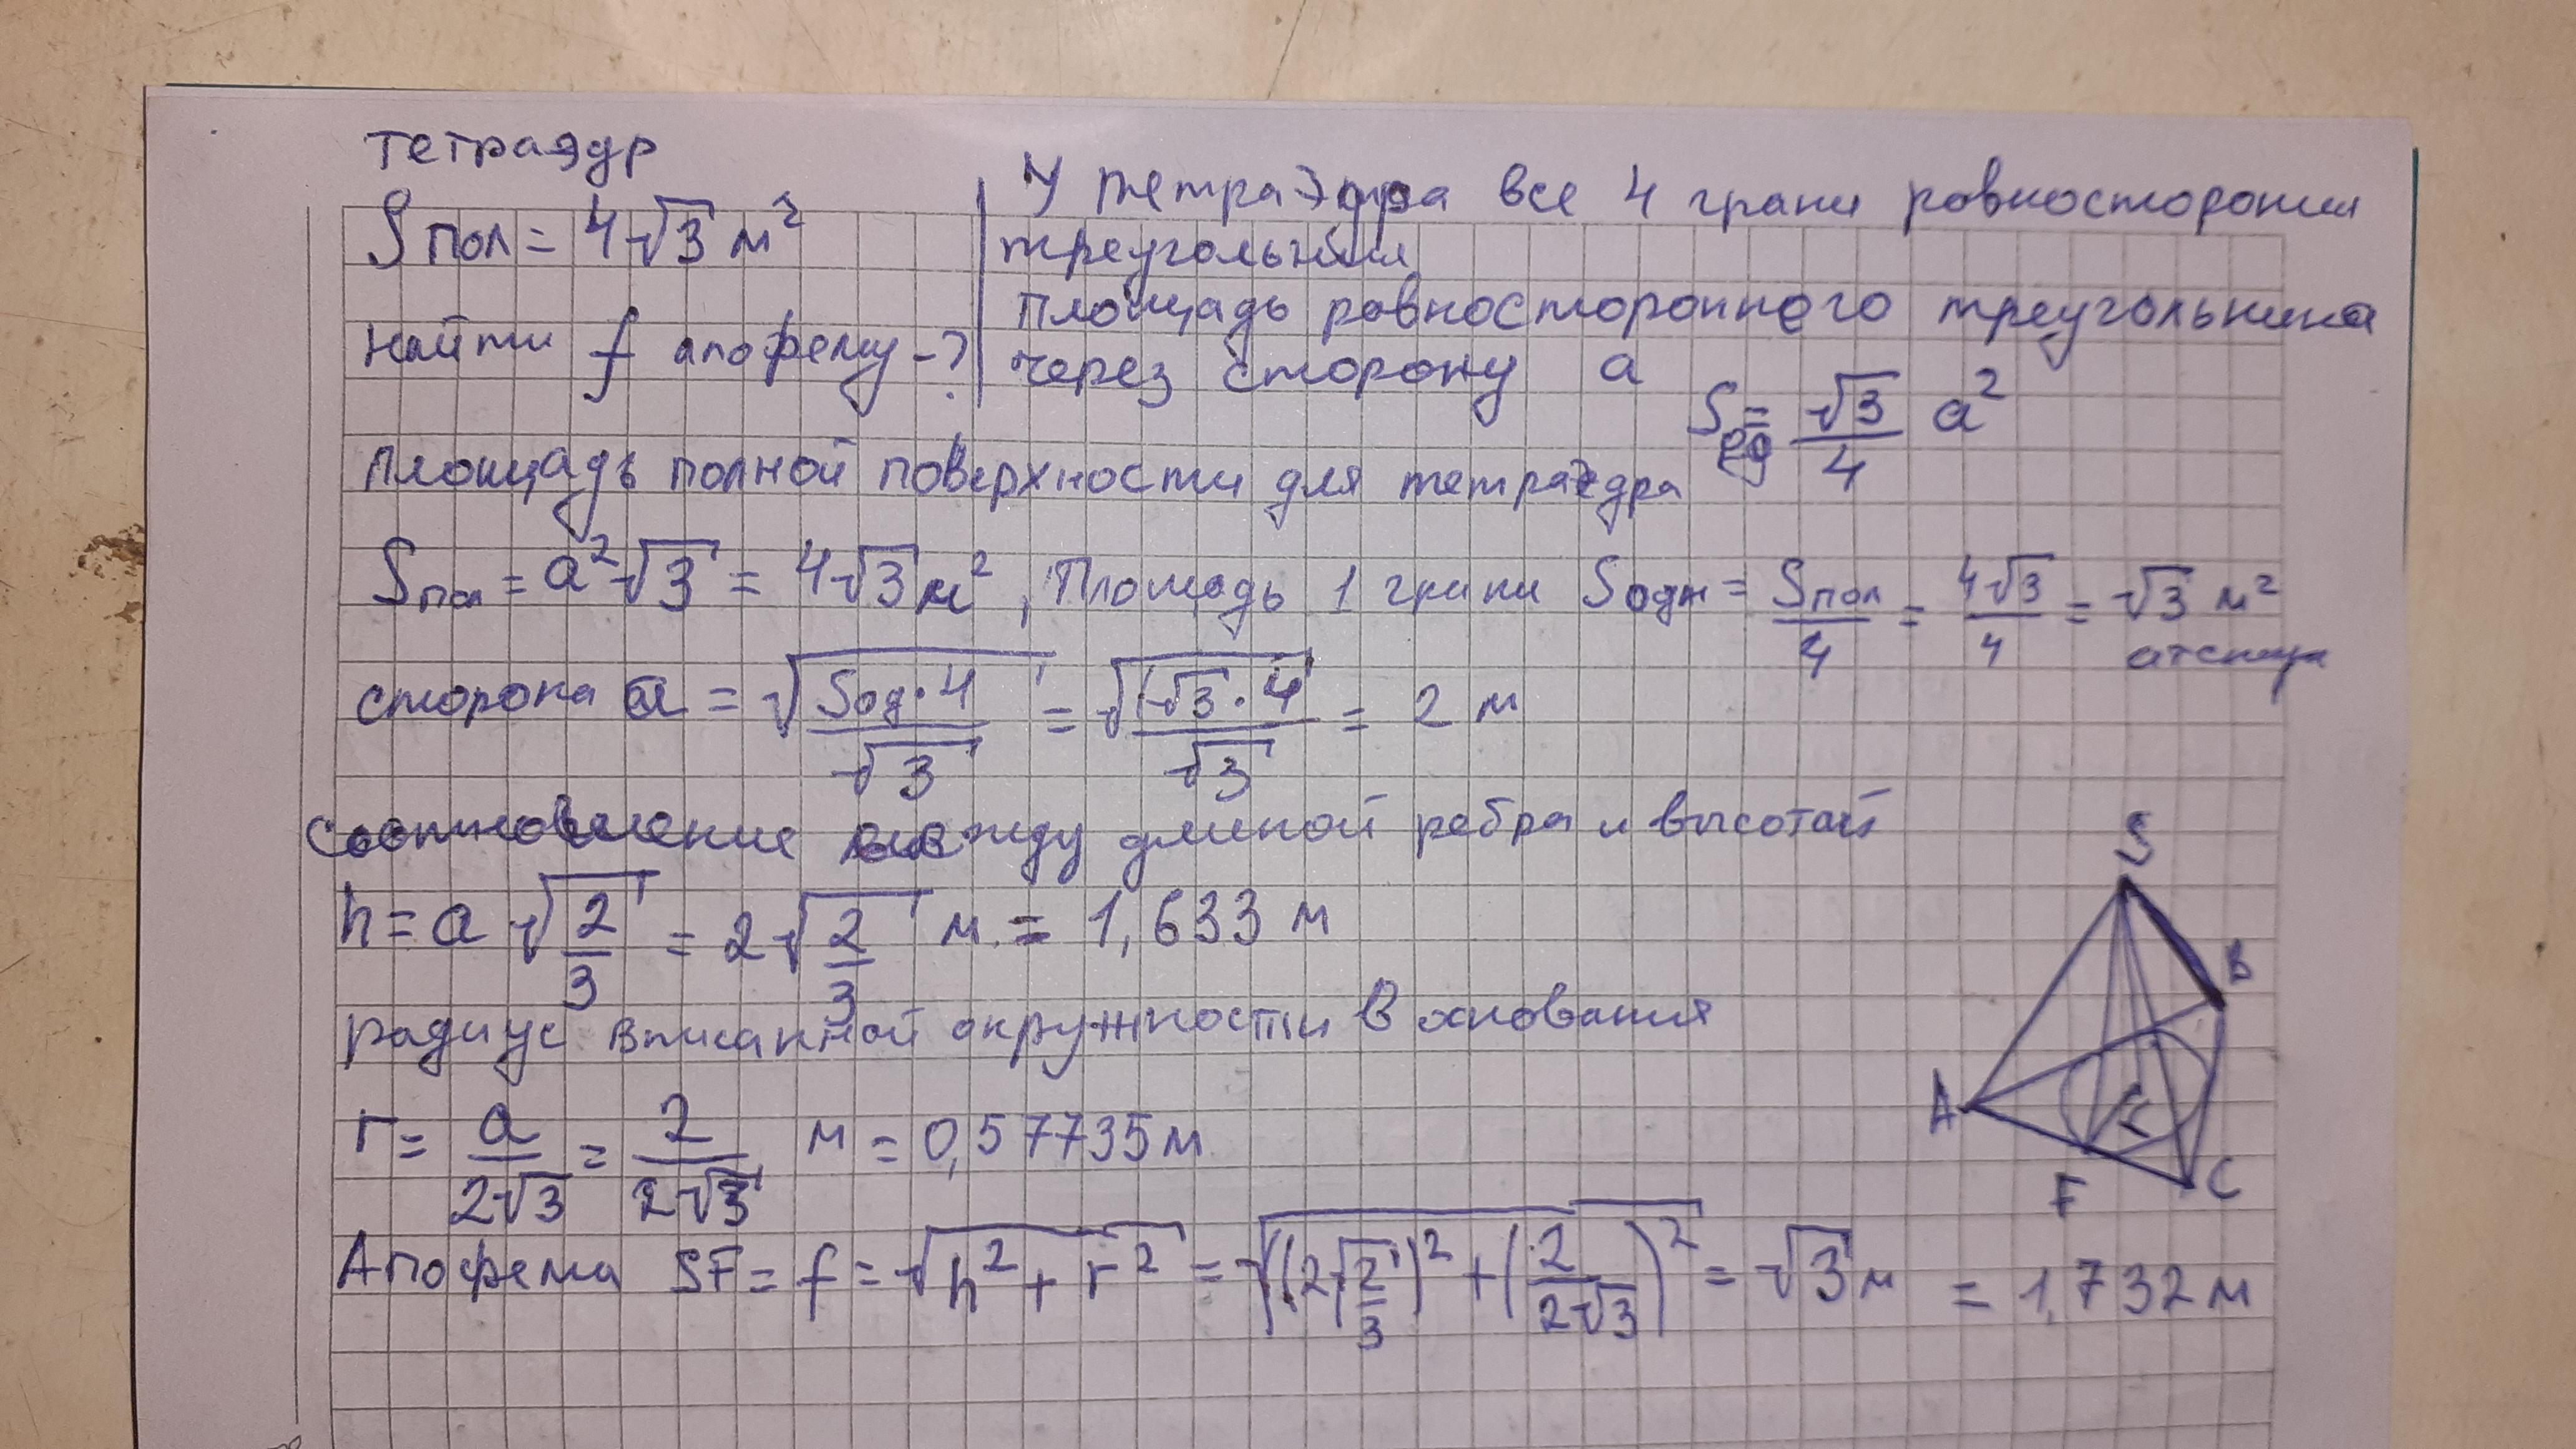 тетраэдр
Sпол = 4√3 м²
найти f апофему - ?
У тетраэдра все 4 грани равносторонии
треугольнии
площадь равностороннего треугольника
через сторону a
Sед = √3/4 a²
площадь полной поверхности для тетраэдра
Sпол = a²√3 = 4√3 м², Площадь 1 грани Sодн = Sпол/4 = 4√3/4 = √3 м²
отсюда
сторона a = √(Sод·4/√3) = √(√3·4/√3) = 2 м
между длиной ребра и высотой
h = a√(2/3) = 2√(2/3) м = 1,633 м
радиус вписанной окружности в основания
r = a/(2√3) = 2/(2√3) м = 0,57735 м
Апофема SF = f = √(h² + r²) = √((2√(2/3))² + (2/(2√3))²) = √3 м = 1,732 м
S
B
A
F
C